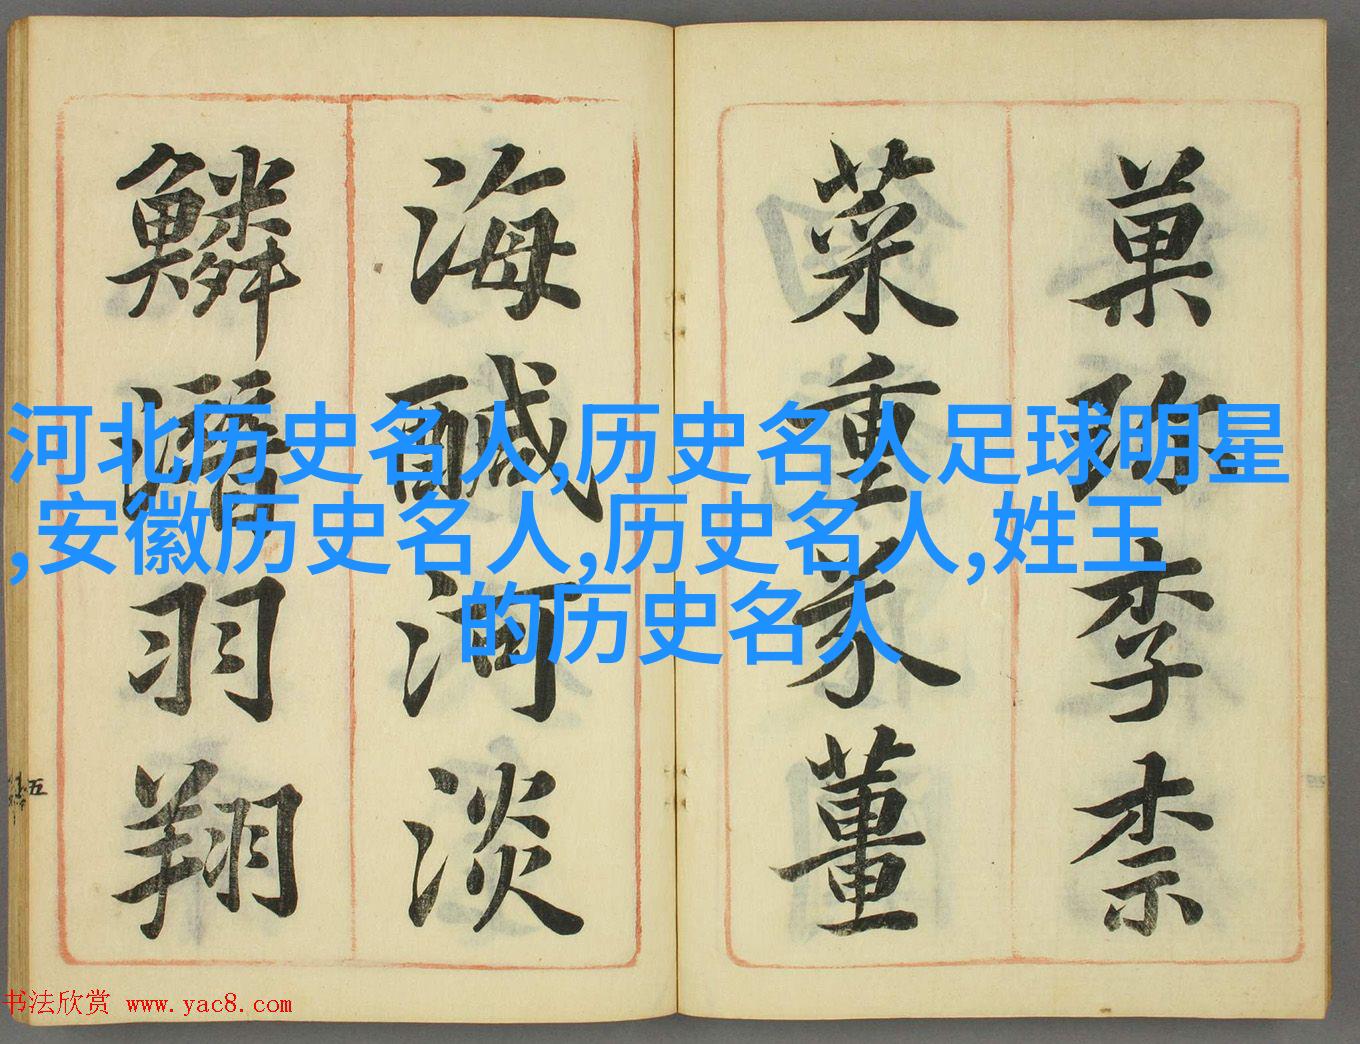 菓珍李柰
菜重芥薑
海醎河淡
鱗潛羽翔
五
河北历史名人,历史名人足球明星
,安徽历史名人,历史名人,姓王
的历史名人
书法欣赏 www.yac8.com